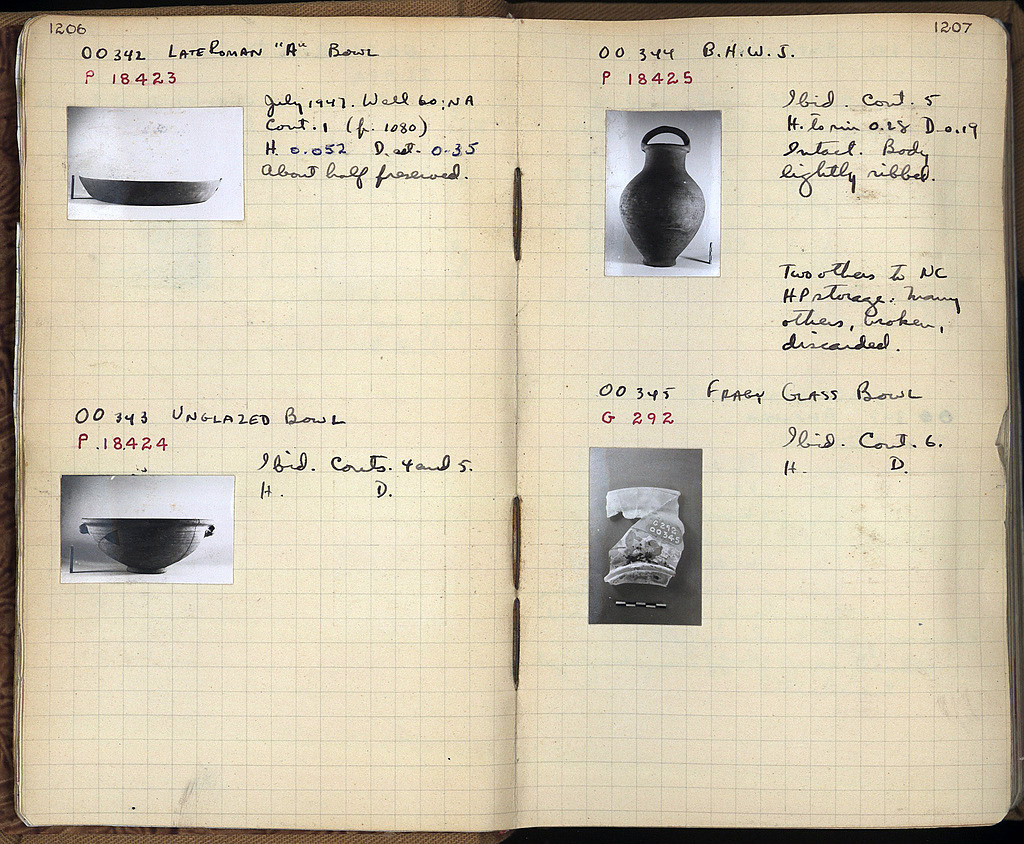 1206
OO 342 LATE ROMAN "A" BOWL
P 18423
July 1947. Well 60; NA
Cont. 1 (p. 1080)
H. 0.052 D. est. 0.35
About half preserved.
OO 343 UNGLAZED BOWL
P 18424
Ibid. Conts. 4 and 5.
H. D.
1207
OO 344 B.H.W.J.
P 18425
Ibid. Cont. 5
H. to rim 0.28 D. 0.19
Intact. Body
lightly ribbed.
Two others to NC
HP storage. Many
others, broken,
discarded.
OO 345 FRAGY GLASS BOWL
G 292
Ibid. Cont. 6.
H. D.
G 292
OO 345